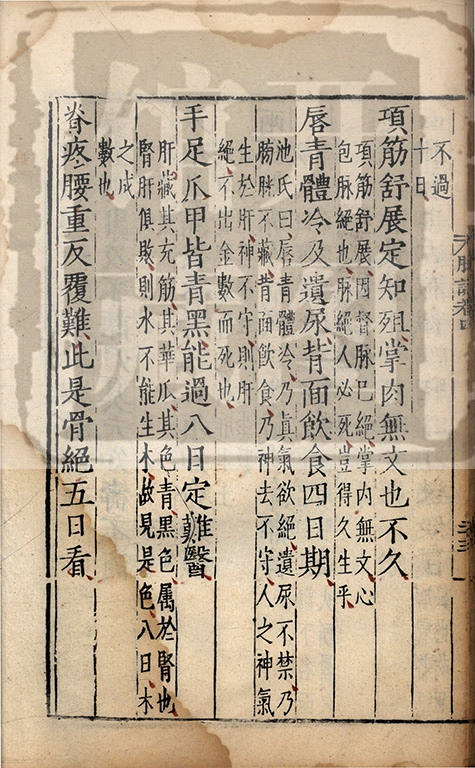 不過
十日
項筋舒展定知殂掌肉無文也不久
項筋舒展因督脉已絕掌内無文心
包脉絕也脉絕人必死豈得久生乎
唇青體冷及遺尿背面飲食四日期
池氏曰唇青體冷乃真氣欲絕遺尿不禁乃
膀胱不藏背面飲食乃神去不守人之神氣
生於肝神不守則肝
絕不出金數而死也
手足爪甲皆青黑能過八日定難醫
肝藏其充筋其華爪其色青黑色属於腎也
腎肝俱敗則水不能生木故見是色八日木
之成
數也
脊疼腰重反覆難此是骨絕五日看